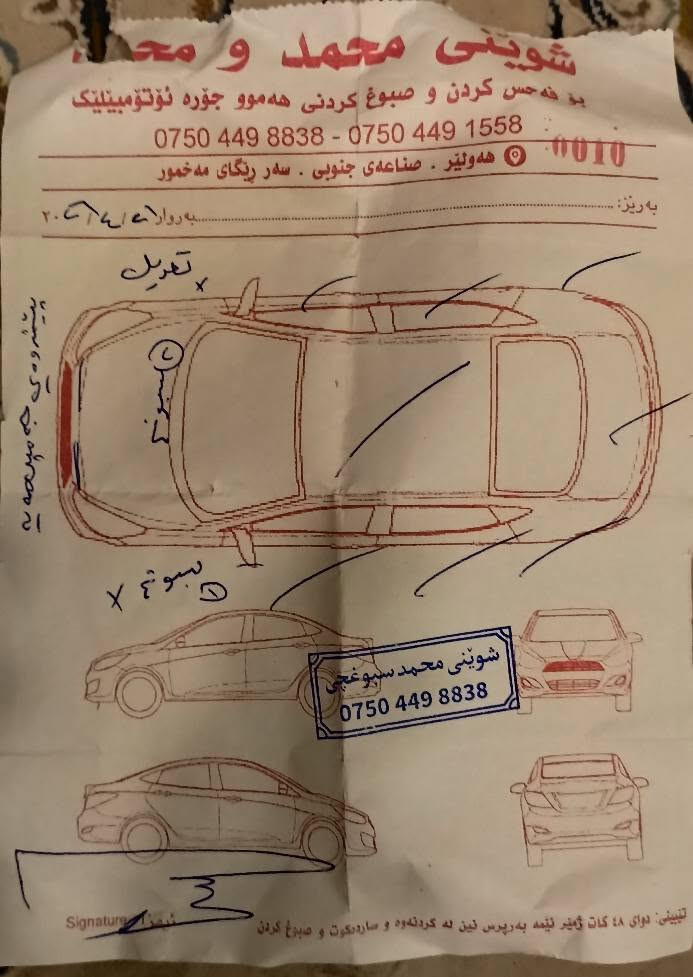 شوێنی محمد و
بۆ فەحس کردن و صبوغ کردنی هەموو جۆرە ئۆتۆمبێلێک
0750 449 8838 - 0750 449 1558
0010
هەولێر . صناعەی جنوبی . سەر ڕێگای مەخمور
بەڕێز:
بەروار
تعدیل x
صبوغ ٢
صبوغ ١ x
شوێنی محمد سبوغچی
0750 449 8838
Signature ئیمزا
تێبینی: دوای ٤٨ کات ژمێر ئێمە بەرپرس نین لە کردنەوە و ساردەکوت و صبوغ کردن